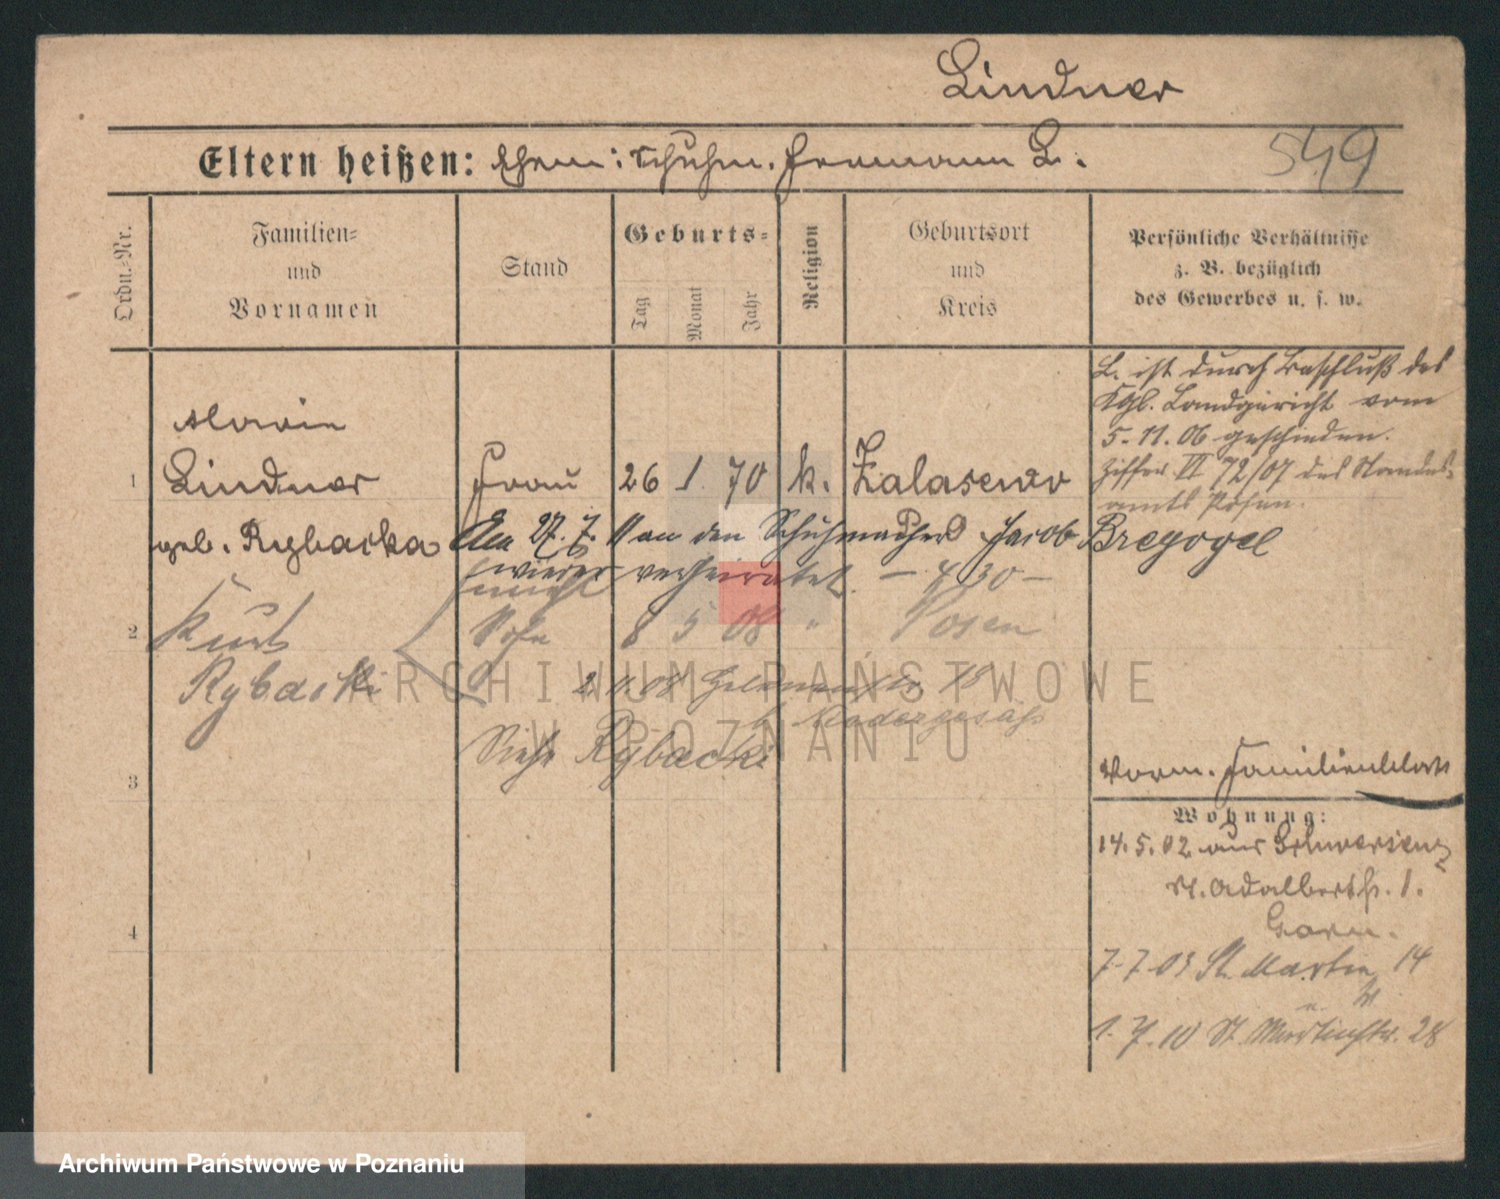 Lindner
549
Eltern heißen: Ehem: Schuhm. Hermann L.
Ordn.-Nr.
Familien-
und
Vornamen
Stand
Geburts-
Tag
Monat
Jahr
Religion
Geburtsort
und
Kreis
Persönliche Verhältnisse
z. B. bezüglich
des Gewerbes u. s. w.
L. ist durch Beschluß des
Kgl. Landgericht vom
5.11.06 geschieden.
Ziffer VI 72/07 des Standes-
amts Posen.
1
Maria
Lindner
geb. Rybacka
Frau
26 1. 70 k. Zalasewo
Am 27. 7. an den Schuhmacher Jacob Bregogel
wieder verheiratet. — 430 —
2
Kurt
Rybacki
Sohn 8 5 08 " Posen
2.11.08 15
Siehe Rybacki
3
4
Vorm. Familienblatt
Wohnung:
14.5.02 aus Schwersenz
St. Adalbertstr. 1.
7-7-03 St. Martin 14
1.7.10 St. Martinstr. 28
ARCHIWUM PAŃSTWOWE
W POZNANIU
Archiwum Państwowe w Poznaniu